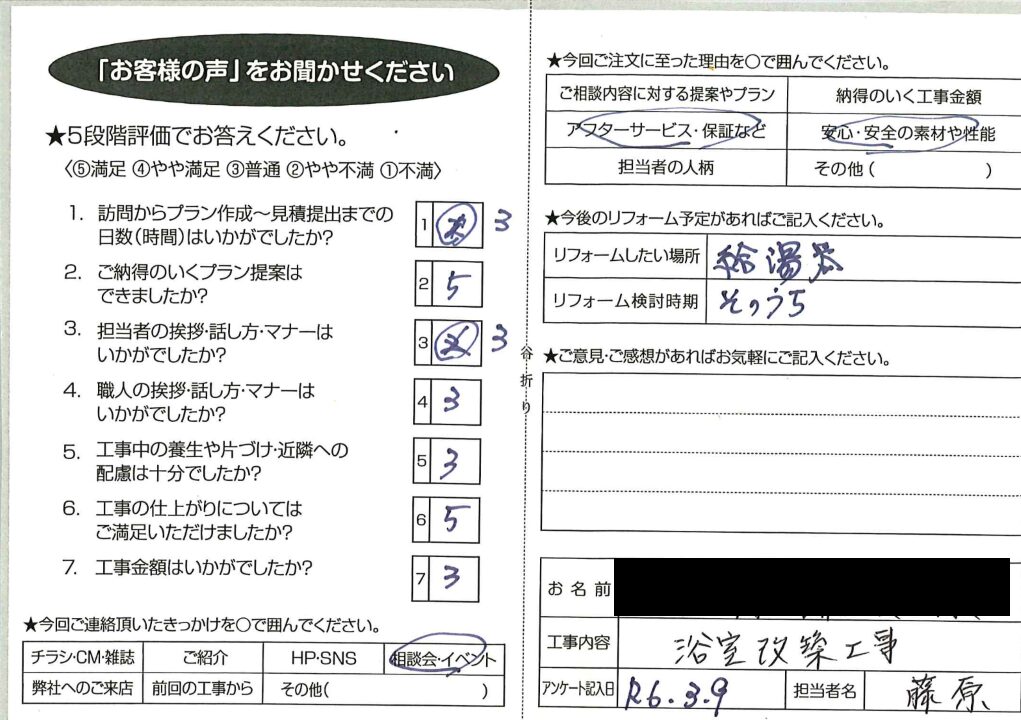 「お客様の声」をお聞かせください
★5段階評価でお答えください。
〈⑤満足 ④やや満足 ③普通 ②やや不満 ①不満〉
1. 訪問からプラン作成～見積提出までの
日数(時間)はいかがでしたか？
1 3
2. ご納得のいくプラン提案は
できましたか？
2 5
3. 担当者の挨拶・話し方・マナーは
いかがでしたか？
3 3
4. 職人の挨拶・話し方・マナーは
いかがでしたか？
4 3
5. 工事中の養生や片づけ・近隣への
配慮は十分でしたか？
5 3
6. 工事の仕上がりについては
ご満足いただけましたか？
6 5
7. 工事金額はいかがでしたか？
7 3
★今回ご連絡頂いたきっかけを〇で囲んでください。
チラシ・CM・雑誌 ご紹介 HP・SNS 相談会・イベント
弊社へのご来店 前回の工事から その他( )
谷折り
★今回ご注文に至った理由を〇で囲んでください。
ご相談内容に対する提案やプラン 納得のいく工事金額
アフターサービス・保証など 安心・安全の素材や性能
担当者の人柄 その他( )
★今後のリフォーム予定があればご記入ください。
リフォームしたい場所 給湯器
リフォーム検討時期 そのうち
★ご意見・ご感想があればお気軽にご記入ください。
お名前
工事内容 浴室改築工事
アンケート記入日 R6.3.9 担当者名 藤原